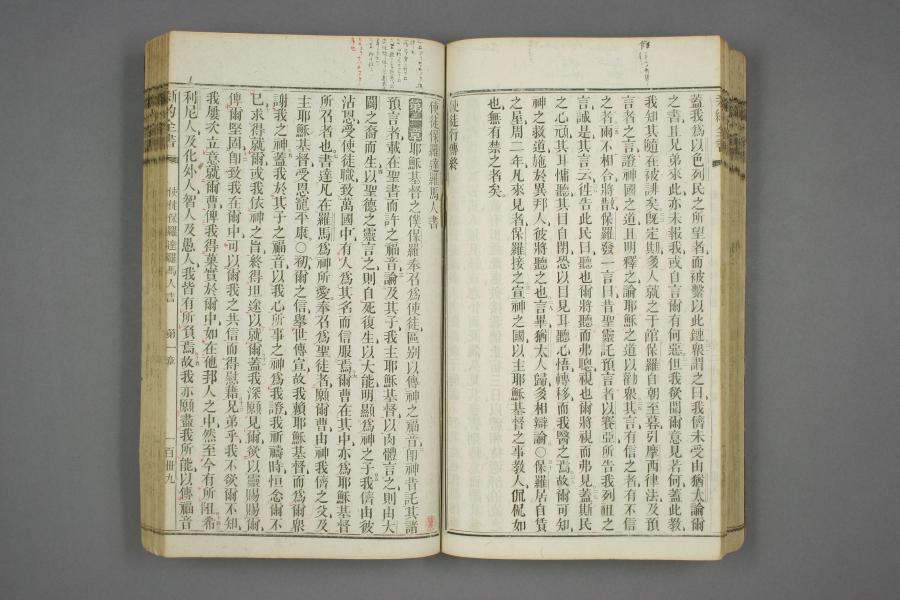 蓋我爲以色列民之所望者而被繫以此鏈衆謂之曰我儕未受由猶太論爾
之書且兄弟來此亦未報我或自言爾有何惡但我欲聞爾意見若何蓋此敎
我知其隨在被誹矣旣定期多人就之于館保羅自朝至暮引摩西律法及預
言者之言證神國之道且明釋之論耶穌之道以勸衆其言有信之者有不信
之者兩不相合將散保羅發一言曰昔聖靈託預言者以賽亞所告我列祖之
言誠是其言云往告此民曰聽也爾將聽而弗聰視也爾將視而弗見蓋斯民
之心頑其耳慵聽其目自閉恐以目見耳聽心悟轉移而我醫之焉故爾可知
神之救道施於異邦人彼將聽之也言畢猶太人歸多相辯論○保羅居自賃
之屋周二年凡來見者保羅接之宣神之國以主耶穌基督之事敎人侃侃如
也無有禁之者矣
使徒行傳終
使徒保羅達羅馬人書
第一章耶穌基督之僕保羅奉召爲使徒區別以傳神之福音卽神昔託其諸
預言者載在聖書而許之福音論及其子我主耶穌基督以肉體言之則由大
闢之裔而生以聖德之靈言之則自死復生以大能明顯爲神之子我儕由彼
沾恩受使徒職致萬國中有人爲其名而信服焉爾曹在其中亦爲耶穌基督
所召者也書達凡在羅馬爲神所愛奉召爲聖徒者願爾曹由神我儕之父及
主耶穌基督受恩寵平康○初爾之信舉世傳宣故我賴耶穌基督而爲爾衆
謝我之神蓋我於其子之福音以我心所事之神爲我證我祈禱時恒念爾不
已求得就爾或我依神之旨終得坦途以就爾蓋我深願見爾欲以靈賜賜爾
俾爾堅固卽致我在爾中可以爾我之共信而得慰藉兄弟乎我不欲爾不知
我屢次立意就爾曹俾我得菓實於爾中如在他邦人之中然至今有所阻希
利尼人及化外人智人及愚人我皆有所負焉故我亦願盡我所能以傳福音
新約全書
使徒保羅達羅馬人書
第一章
一百卌九